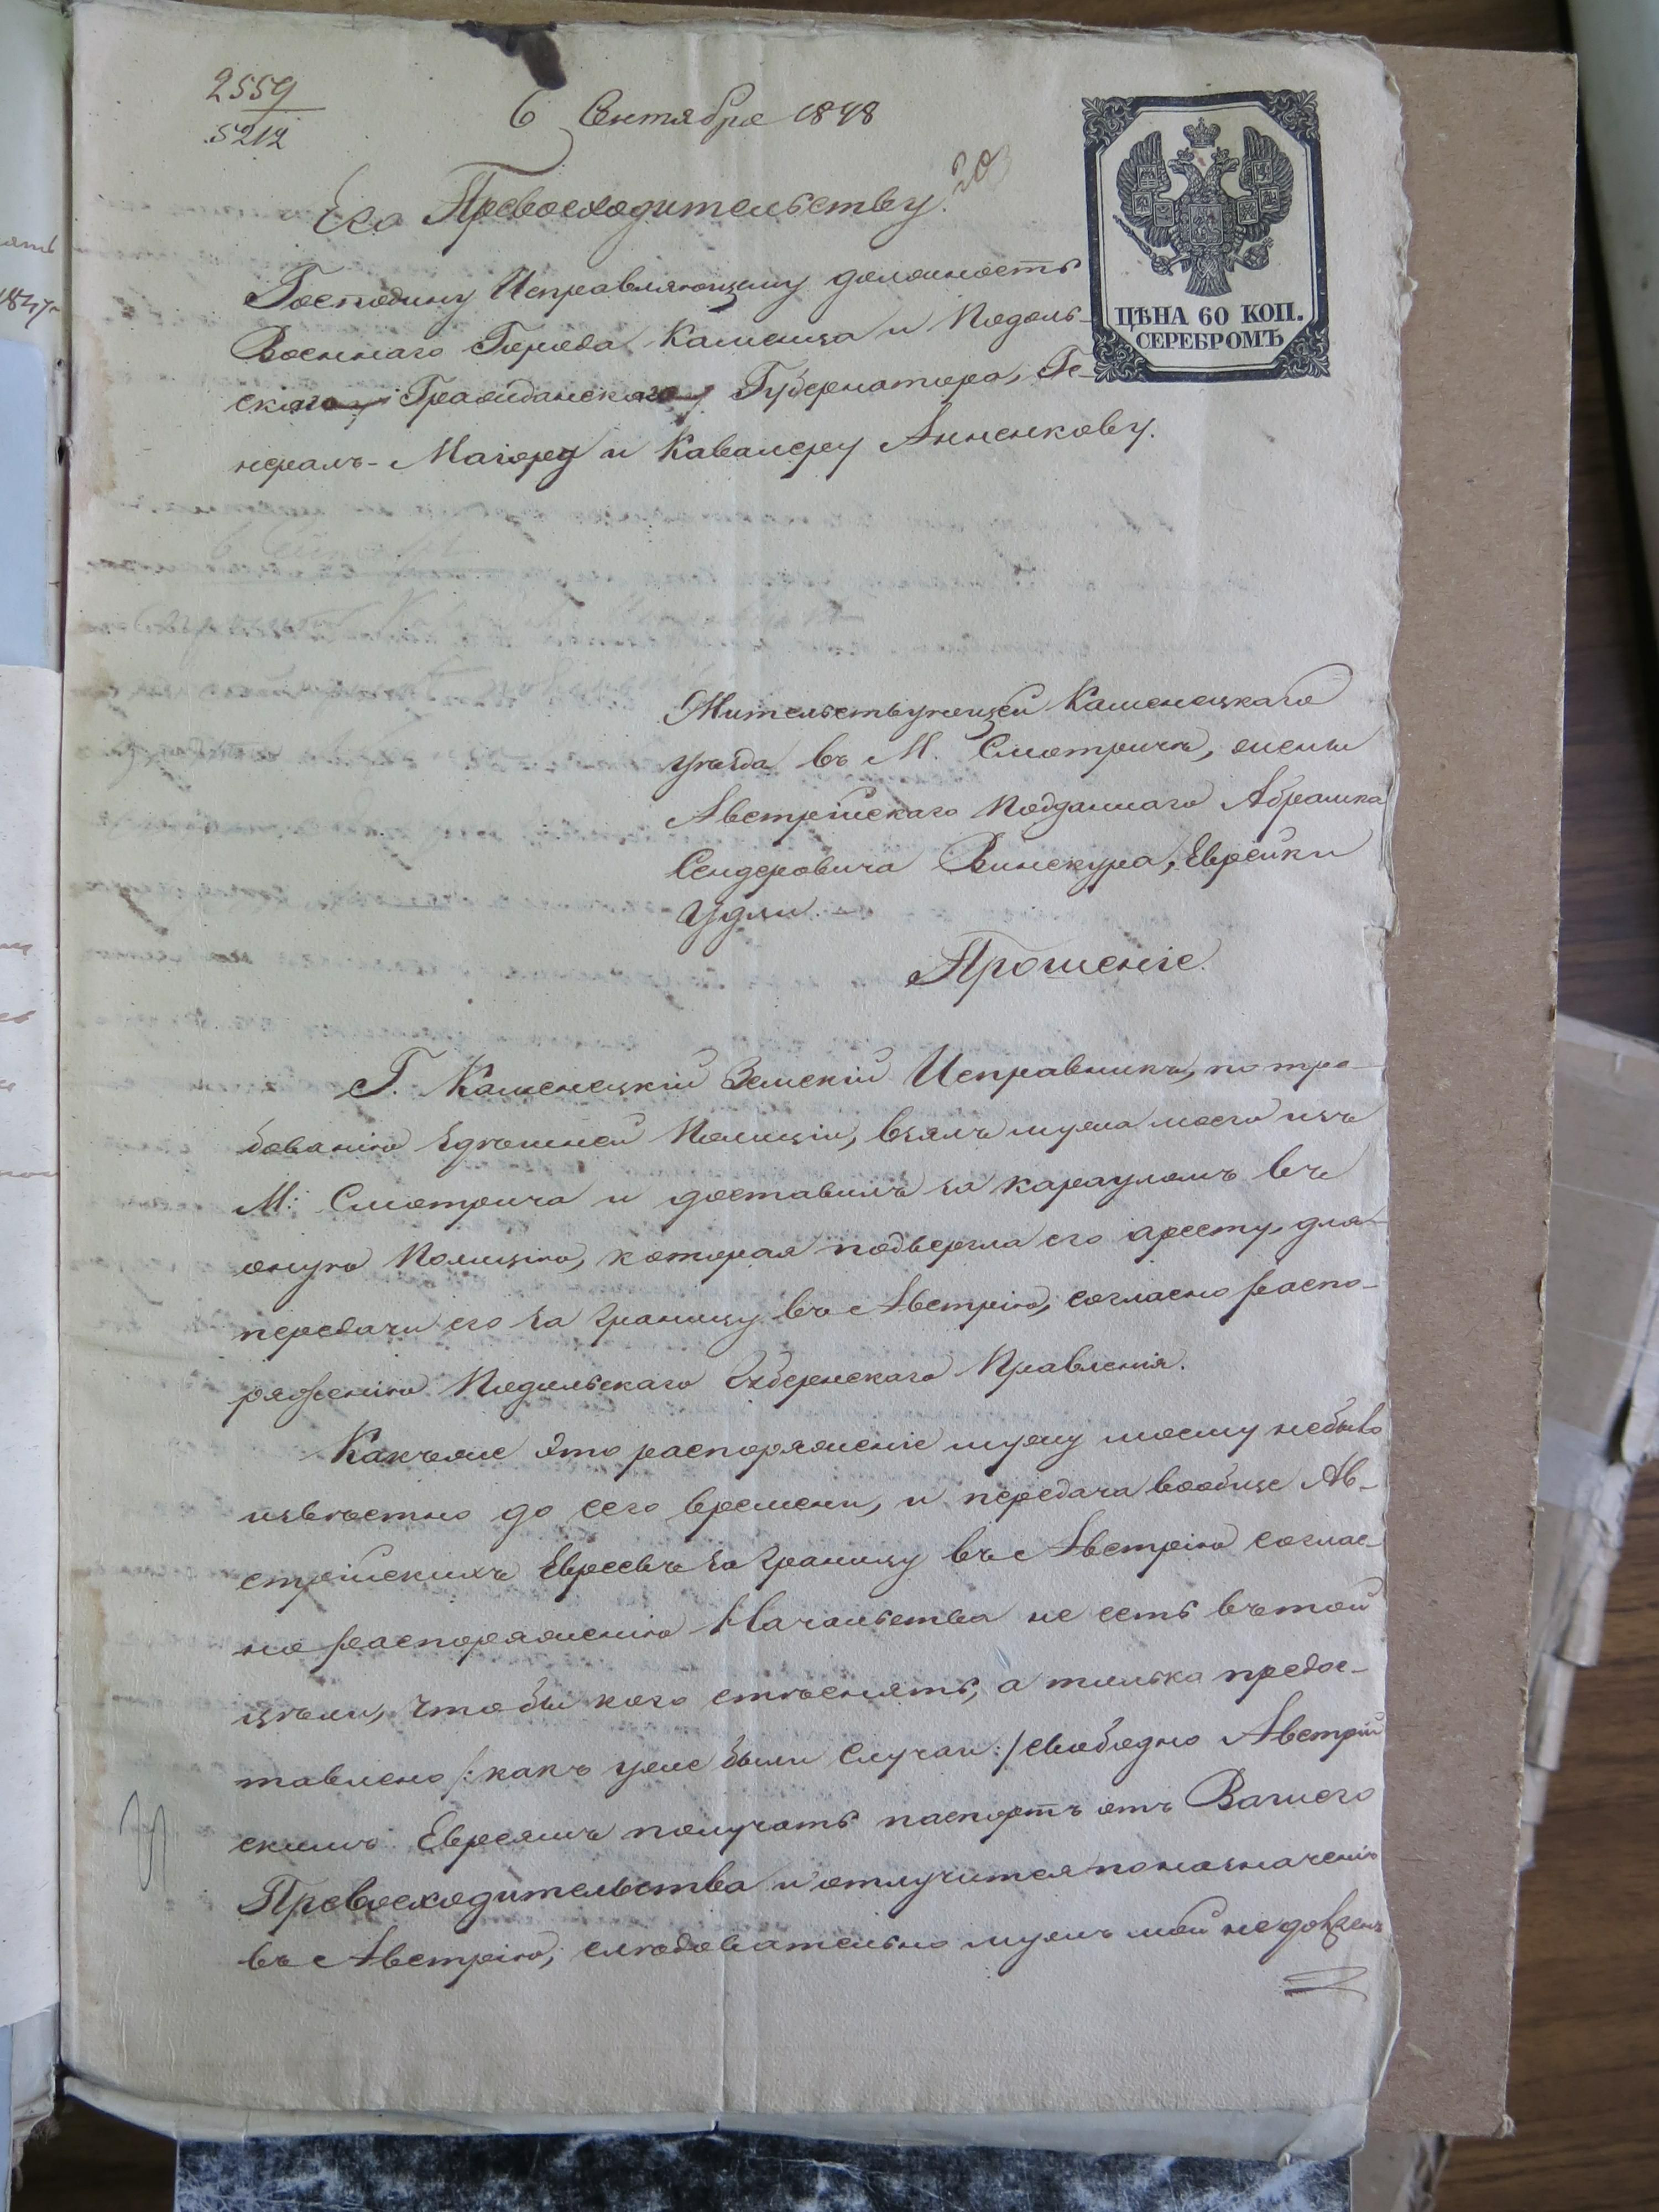 2559
5212
6 Сентября 1848
203
Его Превосходительству.
ЦѢНА 60 КОП.
СЕРЕБРОМЪ
Господину Исправляющему должность
Военнаго Города Каменца и Подоль-
скаго Гражданскаго Губернатора, Ге-
нералъ-Маіору и Кавалеру Анненкову.
Жительствующей Каменецкаго
уѣзда въ М. Смотричѣ, жены
Австрійскаго Подданнаго Абрашка
Сендеровича Винокура, Еврейки
Удли.
Прошеніе.
Г. Каменецкій Земскій Исправникъ, по тре-
бованію здѣшней Полиціи, взялъ мужа моего изъ
М: Смотрича и доставилъ за карауломъ въ
оную Полицію, которая подвергла его аресту, для
передачи его за границу въ Австрію, согласно распо-
ряженію Подольскаго Губернскаго Правленія.
Какъ же это распоряженіе мужу моему небыло
извѣстно до сего времени, и передача вообще Ав-
стрійскихъ Евреевъ за границу въ Австрію соглас-
но распоряженію Начальства не есть въ той
цѣли, чтобы кого стѣснять, а только предос-
тавлено /: какъ уже были случаи :/ свободно Австрій
скимъ Евреямъ получать паспортъ отъ Вашего
Превосходительства и отлучится по назначенію
въ Австрію, слѣдовательно мужъ мой не долженъ